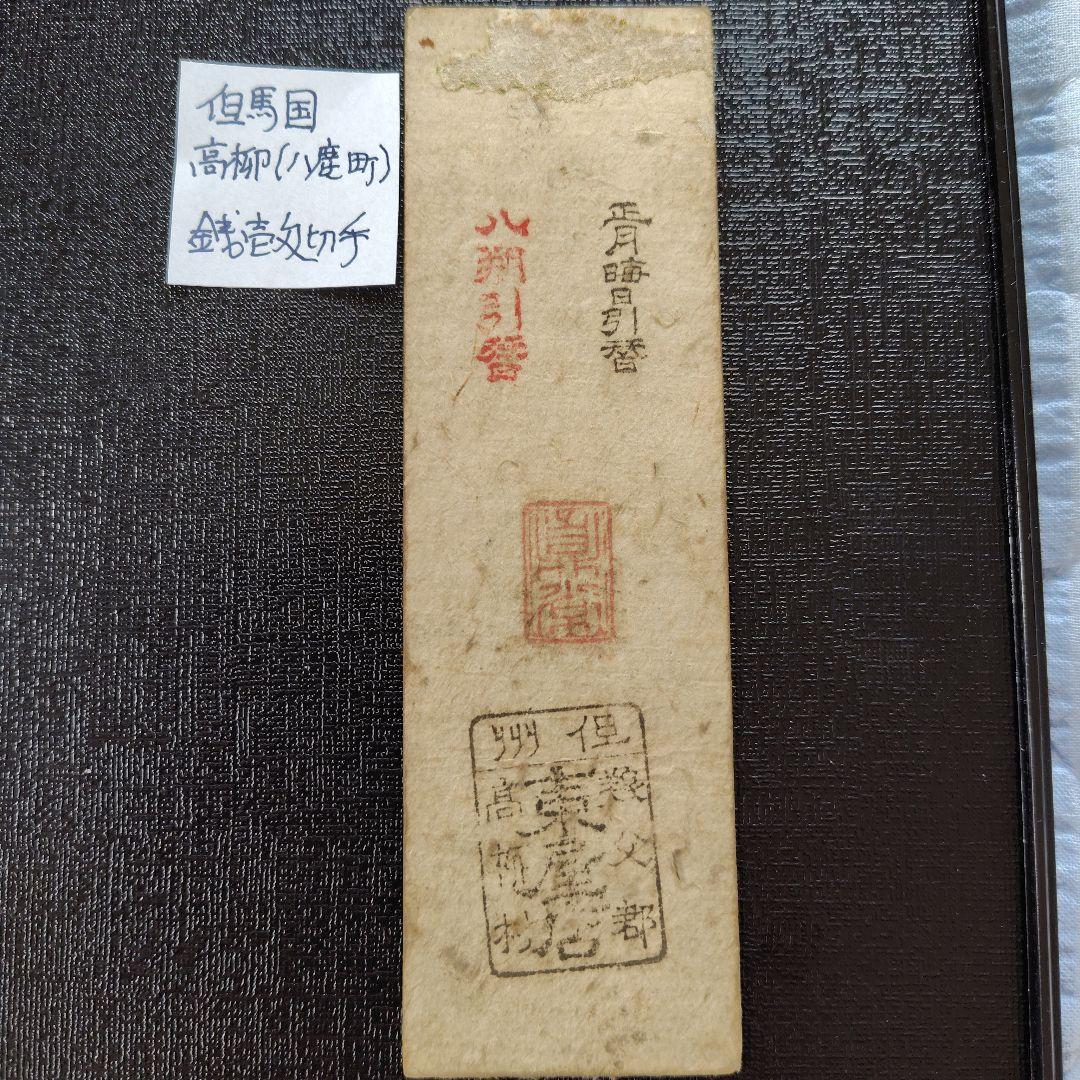 但馬国
高柳(八鹿町)
銭壱文切手
正月晦日引替
八朔引替
但州
養父郡
東屋店
高柳村